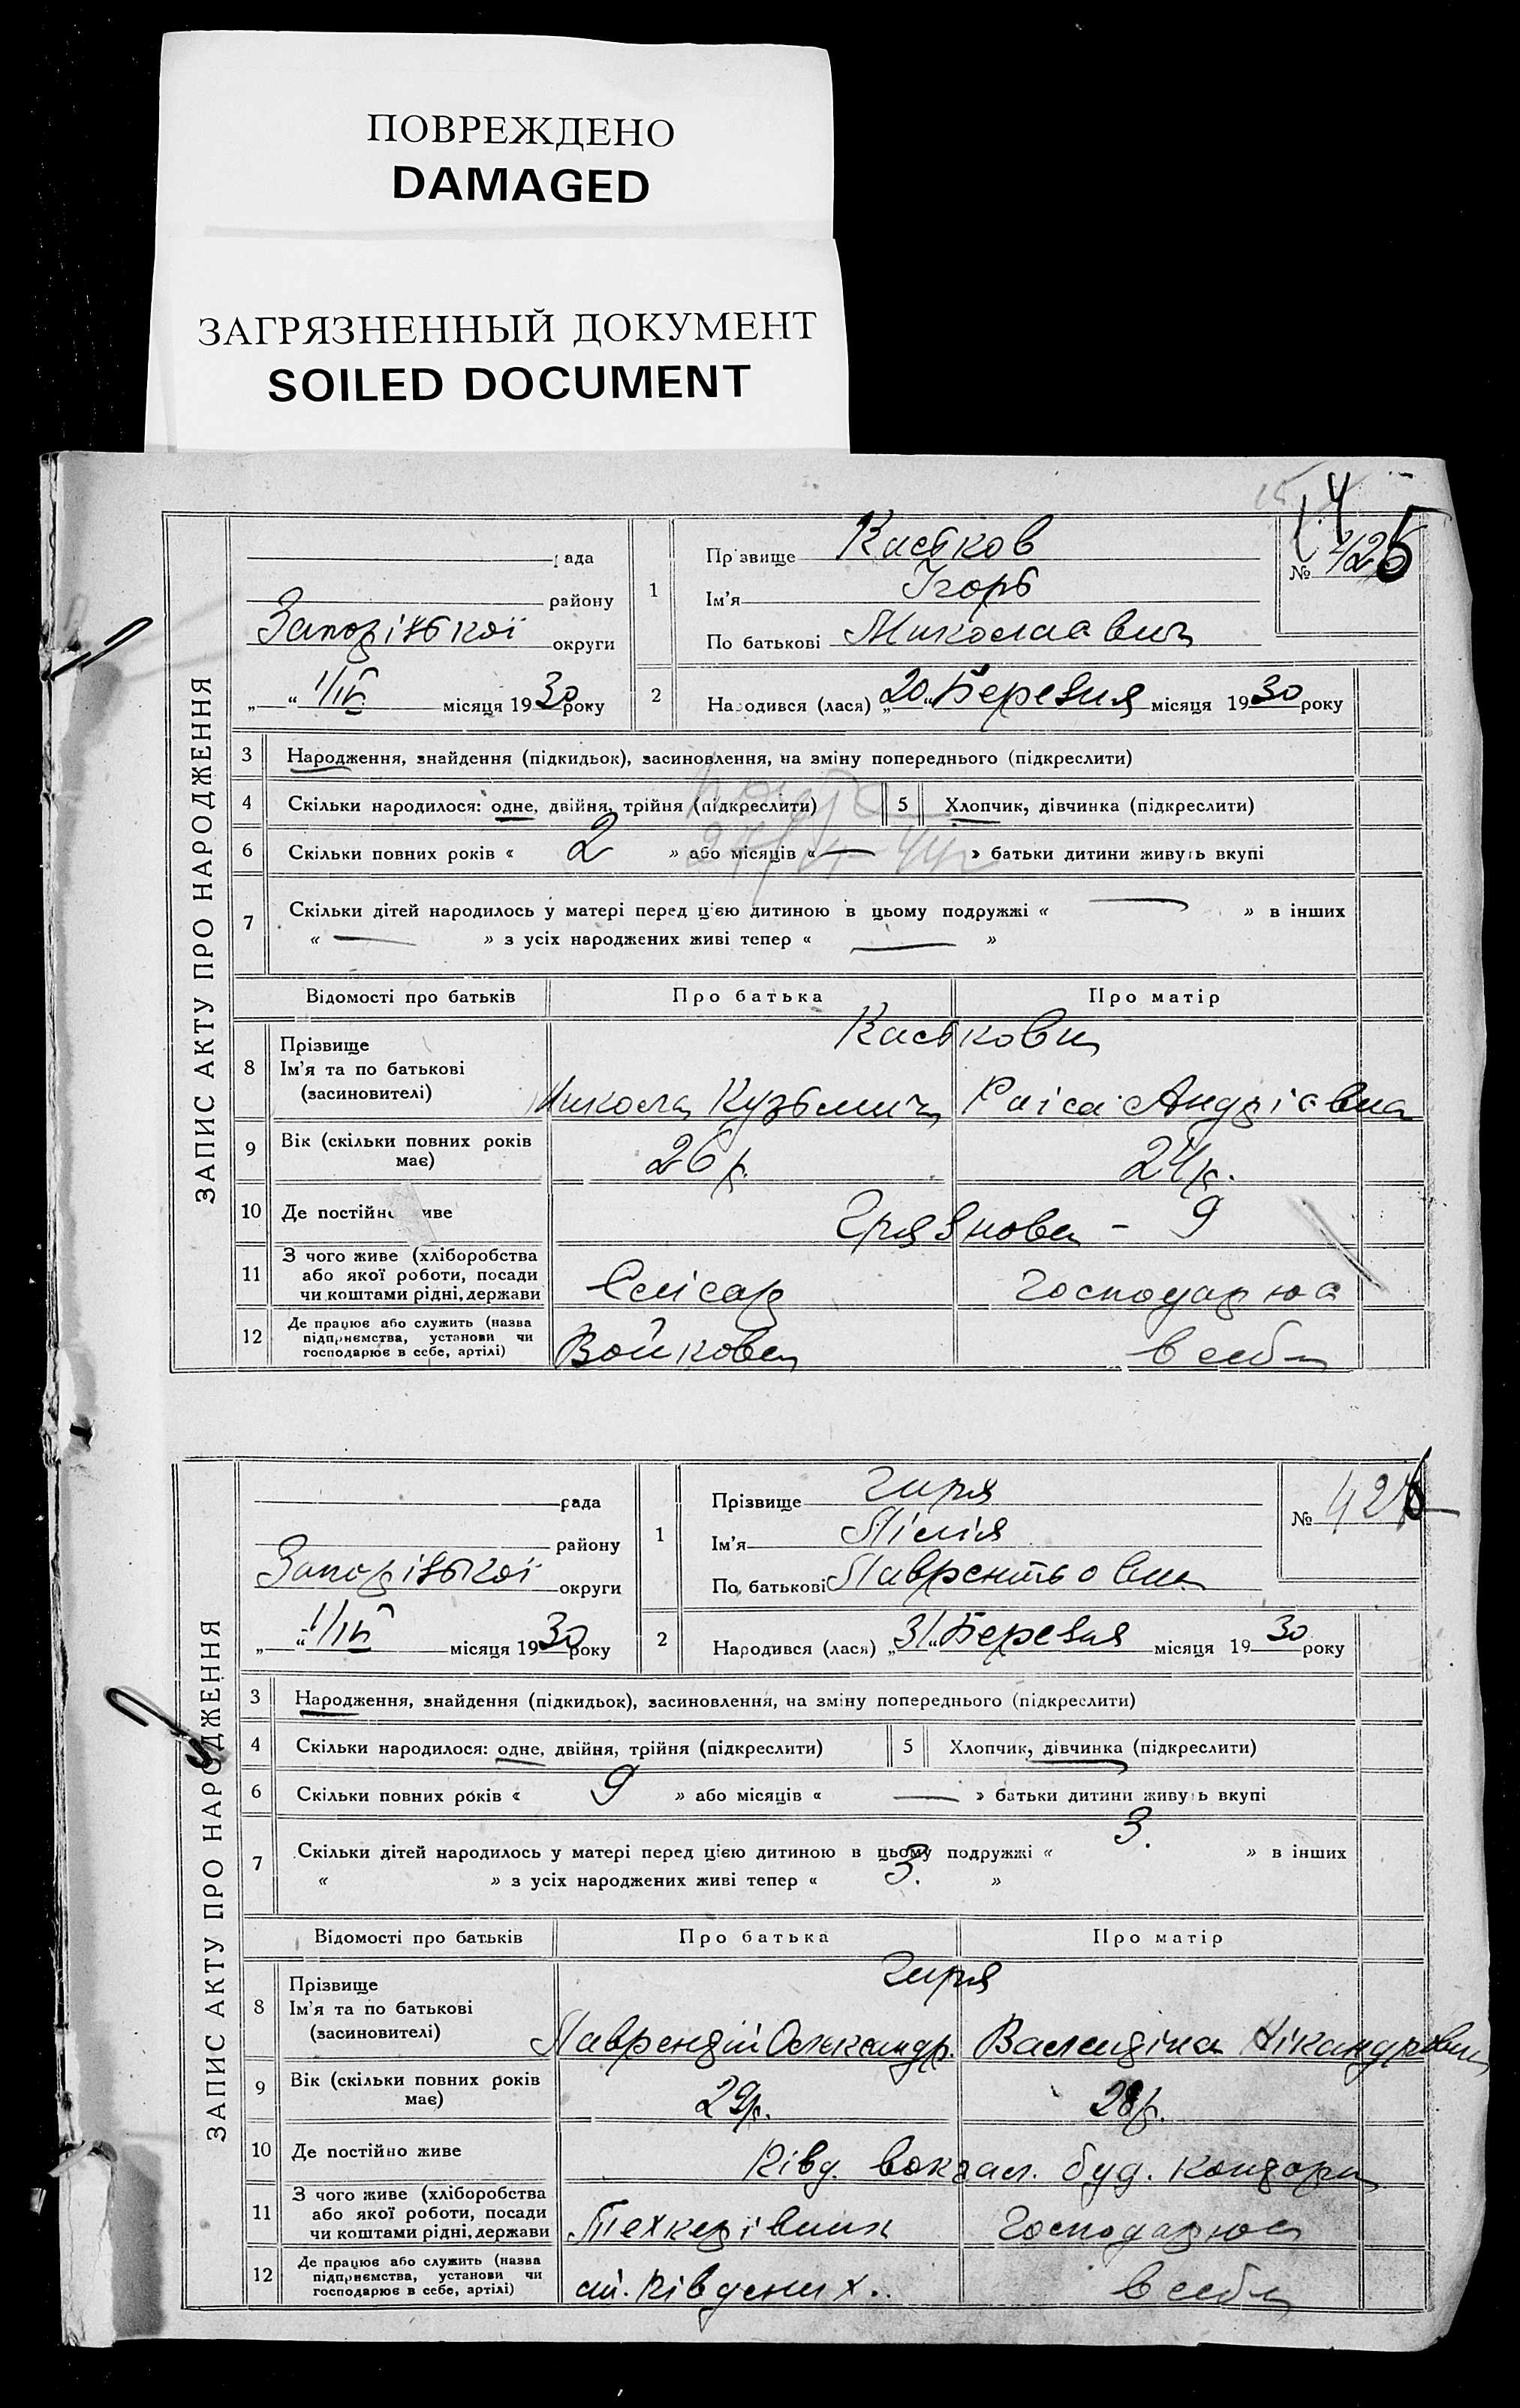 ПОВРЕЖДЕНО
DAMAGED
ЗАГРЯЗНЕННЫЙ ДОКУМЕНТ
SOILED DOCUMENT
ЗАПИС АКТУ ПРО НАРОДЖЕННЯ
рада
району
Запорізької округи
„ “ 1/IV місяця 1930 року
1
Прізвище Кастков
Ім'я Ігорь
По батькові Миколаавич
№ 425
2 Народився (лася) „20“ Березня місяця 1930 року
3 Народження, знайдення (підкидьок), засиновлення, на зміну попереднього (підкреслити)
4 Скільки народилося: одне, двійня, трійня (підкреслити) 5 Хлопчик, дівчинка (підкреслити)
6 Скільки повних років « 2 » або місяців « — » батьки дитини живуть вкупі
7 Скільки дітей народилось у матері перед цією дитиною в цьому подружжі « — » в інших
« — » з усіх народжених живі тепер « — »
Відомості про батьків Про батька Про матір
8 Прізвище
Ім'я та по батькові
(засиновителі)
Касткови
Микола Кузьмич Раіса Андріавна
9 Вік (скільки повних років має) 26 р. 24 р.
10 Де постійно живе Грязнова - 9
11 З чого живе (хліборобства
або якої роботи, посади
чи коштами рідні, держави
Слісар Господарюа
12 Де працює або служить (назва
підприємства, установи чи
господарює в себе, артілі)
Войкова в себе
ЗАПИС АКТУ ПРО НАРОДЖЕННЯ
рада
району
Запорізької округи
„ “ 1/IV місяця 1930 року
1
Прізвище Гиря
Ім'я Лілія
По батькові Лаврентьовна
№ 426
2 Народився (лася) „31“ Березня місяця 1930 року
3 Народження, знайдення (підкидьок), засиновлення, на зміну попереднього (підкреслити)
4 Скільки народилося: одне, двійня, трійня (підкреслити) 5 Хлопчик, дівчинка (підкреслити)
6 Скільки повних років « 9 » або місяців « — » батьки дитини живуть вкупі
7 Скільки дітей народилось у матері перед цією дитиною в цьому подружжі « 3. » в інших
« » з усіх народжених живі тепер « 3. »
Відомості про батьків Про батька Про матір
8 Прізвище
Ім'я та по батькові
(засиновителі)
Гиря
Лаврентій Олександр. Валентіна Нікандровна
9 Вік (скільки повних років має) 29 р. 28 р.
10 Де постійно живе Півд. вокзал. буд. контори
11 З чого живе (хліборобства
або якої роботи, посади
чи коштами рідні, держави
Техкерівник Господарює
12 Де працює або служить (назва
підприємства, установи чи
господарює в себе, артілі)
ст. Південих.. в себе